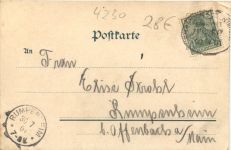 4230
28€
Postkarte
An
Frau
Elisa
Rumpenheim
b. Offenbach a/
Main
RUMPENHEIM